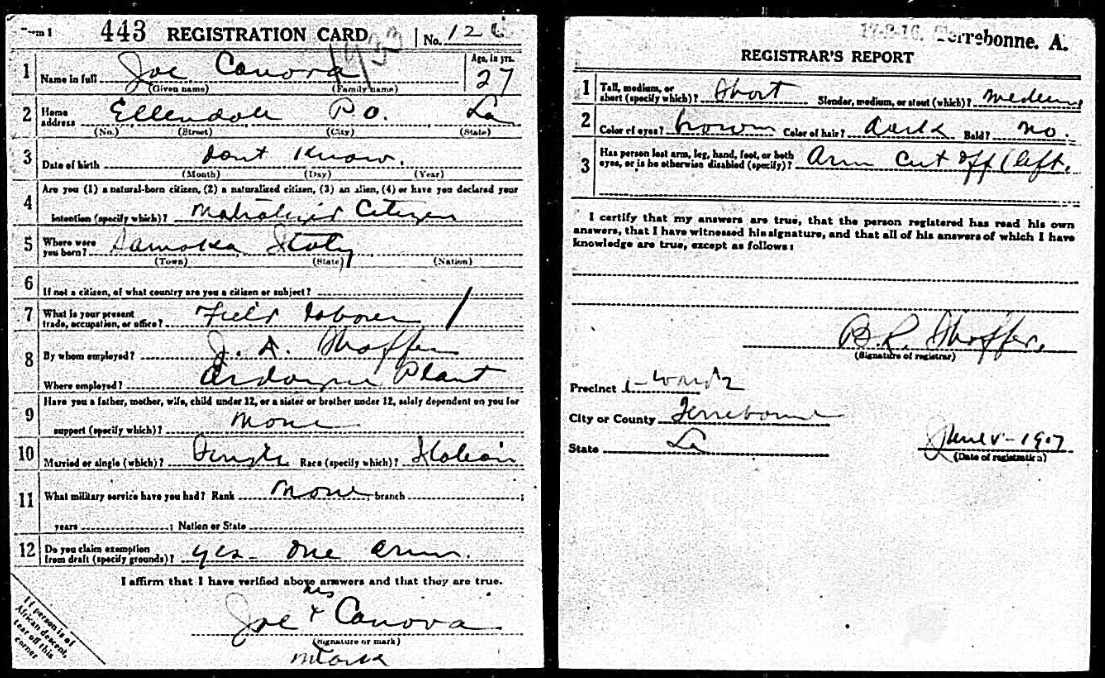 Form 1 443 REGISTRATION CARD No. 126
1933
1 Name in full Joe Canova Age, in yrs. 27
(Given name) (Family name)
2 Home address Ellendale P.O. La
(No.) (Street) (City) (State)
3 Date of birth dont Know.
(Month) (Day) (Year)
4 Are you (1) a natural-born citizen, (2) a naturalized citizen, (3) an alien, (4) or have you declared your
intention (specify which)? Citizen
5 Where were you born? Italy
(Town) (State) (Nation)
6 If not a citizen, of what country are you a citizen or subject?
7 What is your present trade, occupation, or office? Field laborer
8 By whom employed? J. A. Shaffer
Where employed? Ardoyne Plant
9 Have you a father, mother, wife, child under 12, or a sister or brother under 12, solely dependent on you for
support (specify which)? None
10 Married or single (which)? Single Race (specify which)? Italian
11 What military service have you had? Rank None; branch ;
years ; Nation or State
12 Do you claim exemption from draft (specify grounds)? yes - one arm.
I affirm that I have verified above answers and that they are true.
his
Joe x Canova
(Signature or mark)
mark
If person is of African descent, tear off this corner
17-2-16. Terrebonne. A.
REGISTRAR'S REPORT
1 Tall, medium, or short (specify which)? Short Slender, medium, or stout (which)? medium
2 Color of eyes? brown Color of hair? dark Bald? no.
3 Has person lost arm, leg, hand, foot, or both eyes, or is he otherwise disabled (specify)? Arm cut off (left.
I certify that my answers are true, that the person registered has read his own
answers, that I have witnessed his signature, and that all of his answers of which I have
knowledge are true, except as follows:
B. R. Shaffer.
(Signature of registrar)
Precinct 1-Ward 2
City or County Terrebonne
State La
June 5-1917
(Date of registration)